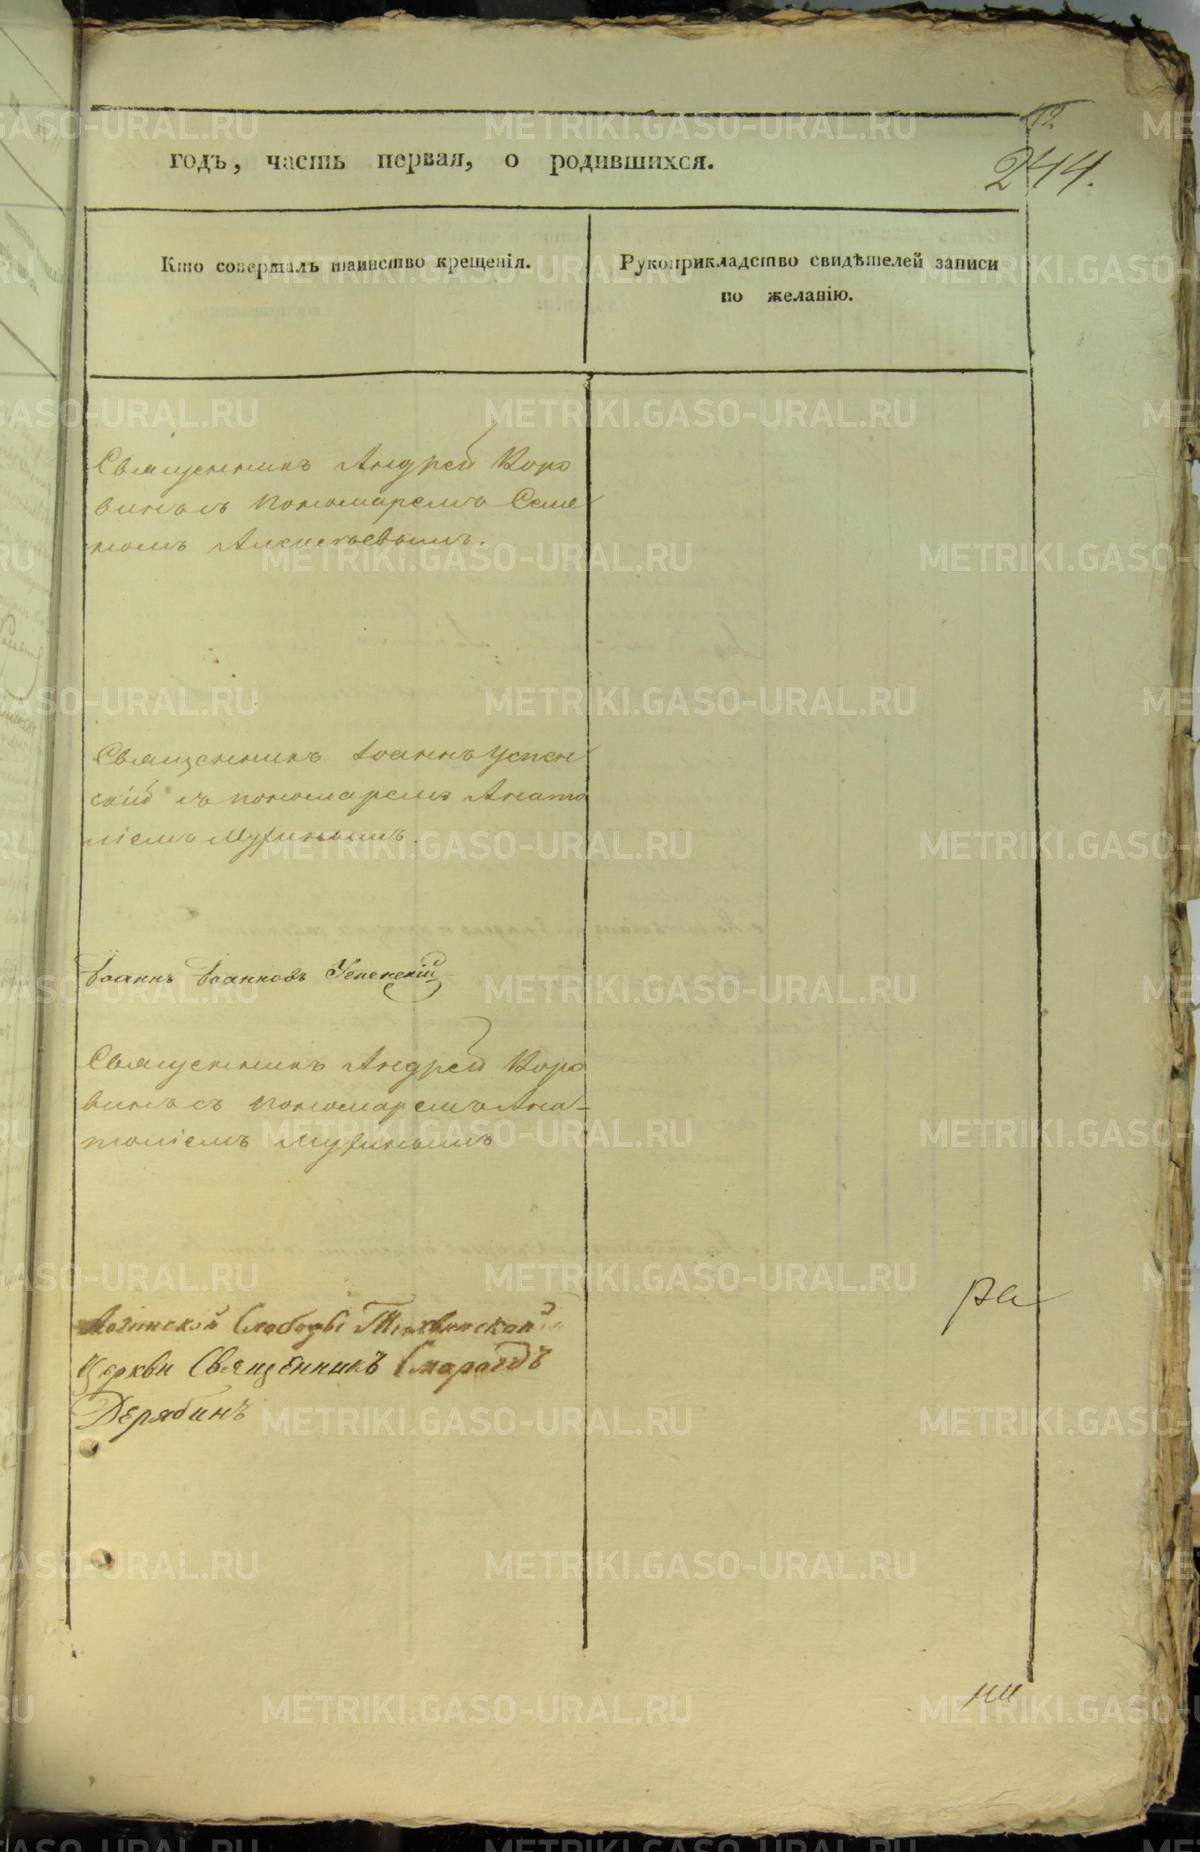 12
244.
годъ, часть первая, о родившихся.
Кто совершалъ таинство крещенія.
Рукоприкладство свидѣтелей записи
по желанію.
Священникъ Андрей Коро
винъ съ пономаремъ Семе
номъ Алексѣевымъ.
Священникъ Іоаннъ Успен
скій съ пономаремъ Анато
ліемъ Мухинымъ.
Іоаннъ Іоанновъ Успенскій
Священникъ Андрей Коро
винъ съ пономаремъ Ана-
толіемъ Мухинымъ
Слободы Тихвинской
Церкви Священникъ Смарагдъ
Дерябинъ
ра
METRIKI.GASO-URAL.RU